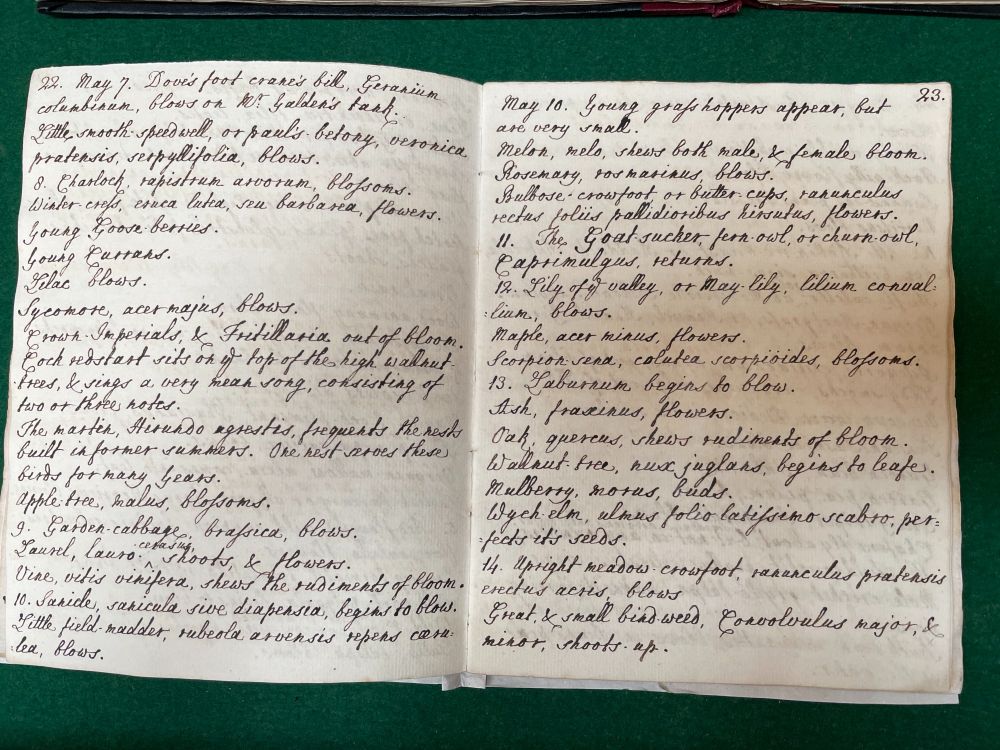 22. May 7. Dove's foot crane's bill, Geranium
columbinum, blows on Mr. Galden's tank.
Little smooth-speedwell, or paul's-betony, veronica
pratensis, serpyllifolia, blows.
8. Charlock, rapistrum arvorum, blossoms.
Winter-cress, eruca lutea, seu barbarea, flowers.
Young Goose-berries.
Young Currans.
Lilac blows.
Sycomore, acer majus, blows.
Crown-Imperials, & Fritillaria out of bloom.
Cock redstart sits on ye top of the high wallnut-
trees, & sings a very mean song, consisting of
two or three notes.
The martin, Hirundo agrestis, frequents the nests
built in former summers. One nest serves these
birds for many years.
Apple-tree, malus, blossoms.
9. Garden-cabbage, brassica, blows.
Laurel, lauro-^cerasus, shoots, & flowers.
Vine, vitis vinifera, shews the rudiments of bloom.
10. Sanicle, sanicula sive diapensia, begins to blow.
Little field-madder, rubeola arvensis repens cæru-
-lea, blows.
23.
May 10. Young grasshoppers appear, but
are very small.
Melon, melo, shews both male, & female bloom.
Rosemary, rosmarinus, blows.
Bulbose-crowfoot or butter-cups, ranunculus
rectus foliis pallidioribus hirsutus, flowers.
11. The Goat-sucker, fern-owl, or churn-owl,
Caprimulgus, returns.
12. Lily of ye valley, or May-lily, lilium conval=
=lium, blows.
Maple, acer minus, flowers.
Scorpion-sena, colutea scorpioides, blossoms.
13. Laburnum begins to blow.
Ash, fraxinus, flowers.
Oak, quercus, shews rudiments of bloom.
Wallnut-tree, nux juglans, begins to leafe.
Mulberry, morus, buds.
Wych-elm, ulmus folio latissimo scabro, per=
=fects it's seeds.
14. Upright meadow-crowfoot, ranunculus pratensis
erectus acris, blows
Great, & small bindweed, Convolvulus major, &
minor, shoots-up.